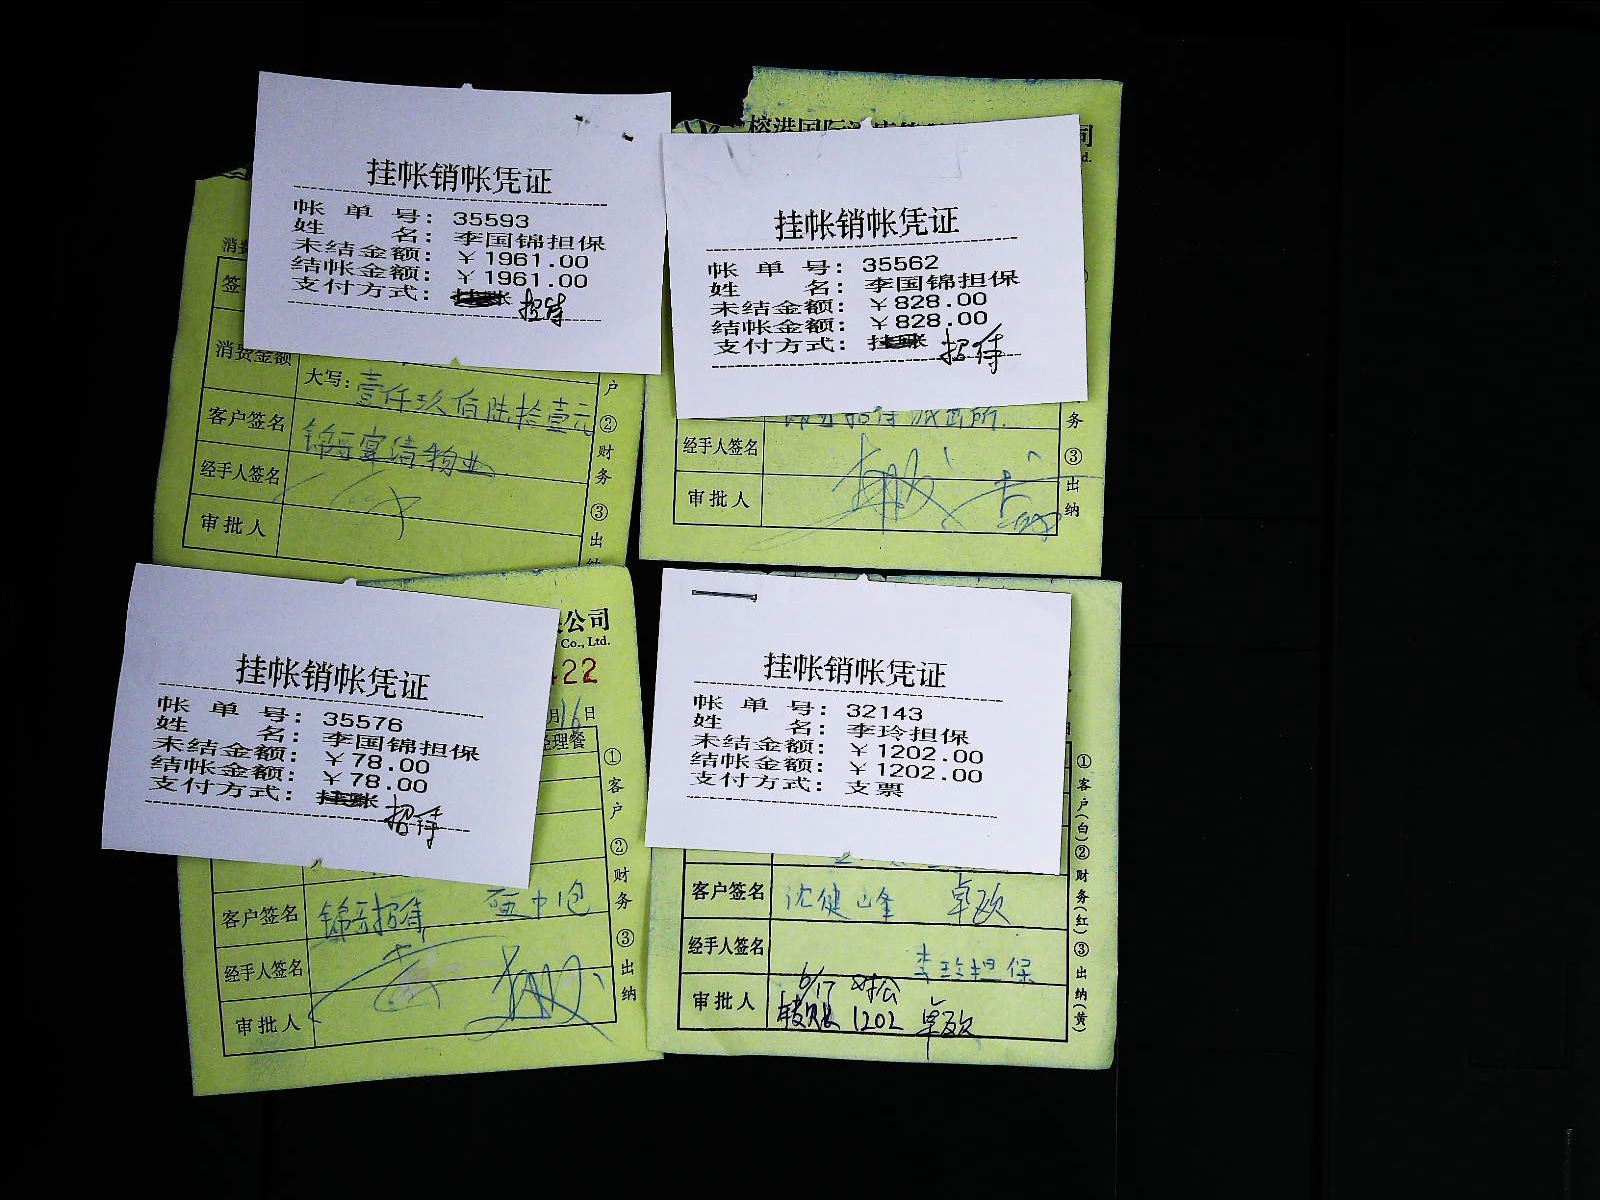 挂帐销帐凭证
帐单号：35593
姓名：李国锦担保
未结金额：￥1961.00
结帐金额：￥1961.00
支付方式：挂账 招待
消费金额
大写：壹仟玖佰陆拾壹元
客户签名 锦哥宴请物业
经手人签名
审批人
户 ②财务 ③出纳
挂帐销帐凭证
帐单号：35562
姓名：李国锦担保
未结金额：￥828.00
结帐金额：￥828.00
支付方式：挂账 招待
招待派出所
经手人签名
审批人
务 ③出纳
公司
Co., Ltd.
22
月16日
经理餐
挂帐销帐凭证
帐单号：35576
姓名：李国锦担保
未结金额：￥78.00
结帐金额：￥78.00
支付方式：挂账 招待
客户签名 锦哥招待
经手人签名
审批人
①客户 ②财务 ③出纳
挂帐销帐凭证
帐单号：32143
姓名：李玲担保
未结金额：￥1202.00
结帐金额：￥1202.00
支付方式：支票
客户签名 沈健峰 卓欧
经手人签名 李玲担保
审批人 6/17 对公
转账 1202 卓欧
①客户(白)②财务(红)③出纳(黄)